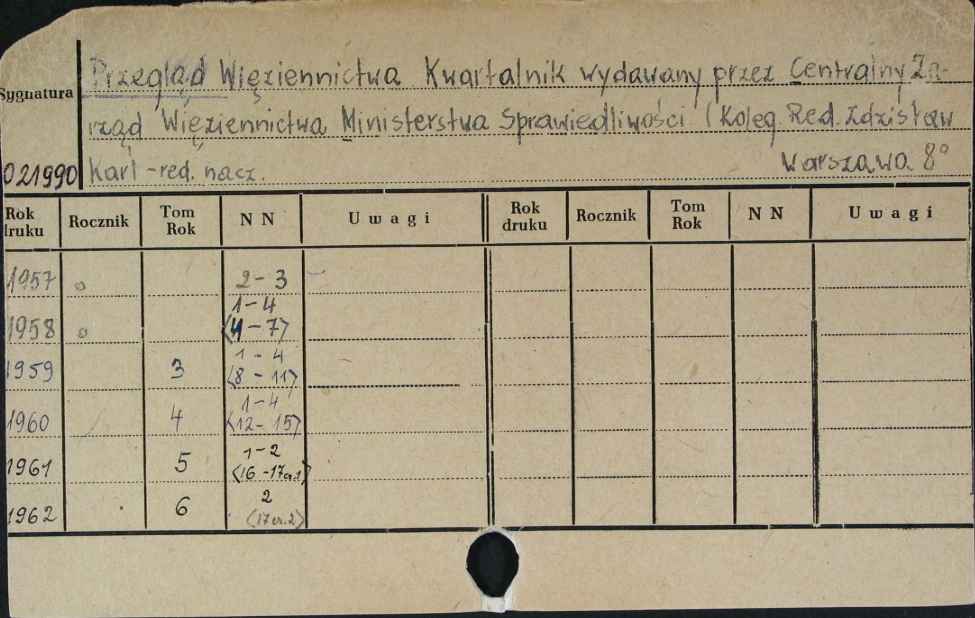 Przegląd Więziennictwa Kwartalnik wydawany przez Centralny Za-
Sygnatura
rząd Więziennictwa Ministerstwa Sprawiedliwości (Koleg. Red. Zdzisław
021990 Karl - red. nacz. Warszawa 8°
Rok druku Rocznik Tom Rok NN Uwagi Rok druku Rocznik Tom Rok NN Uwagi
1957 o 2-3
1-4
1958 o <4-7>
1-4
1959 3 <8-11>
1-4
1960 4 <12-15>
1-2
1961 5 <16-17cz.1>
2
1962 6 <17cz.2>